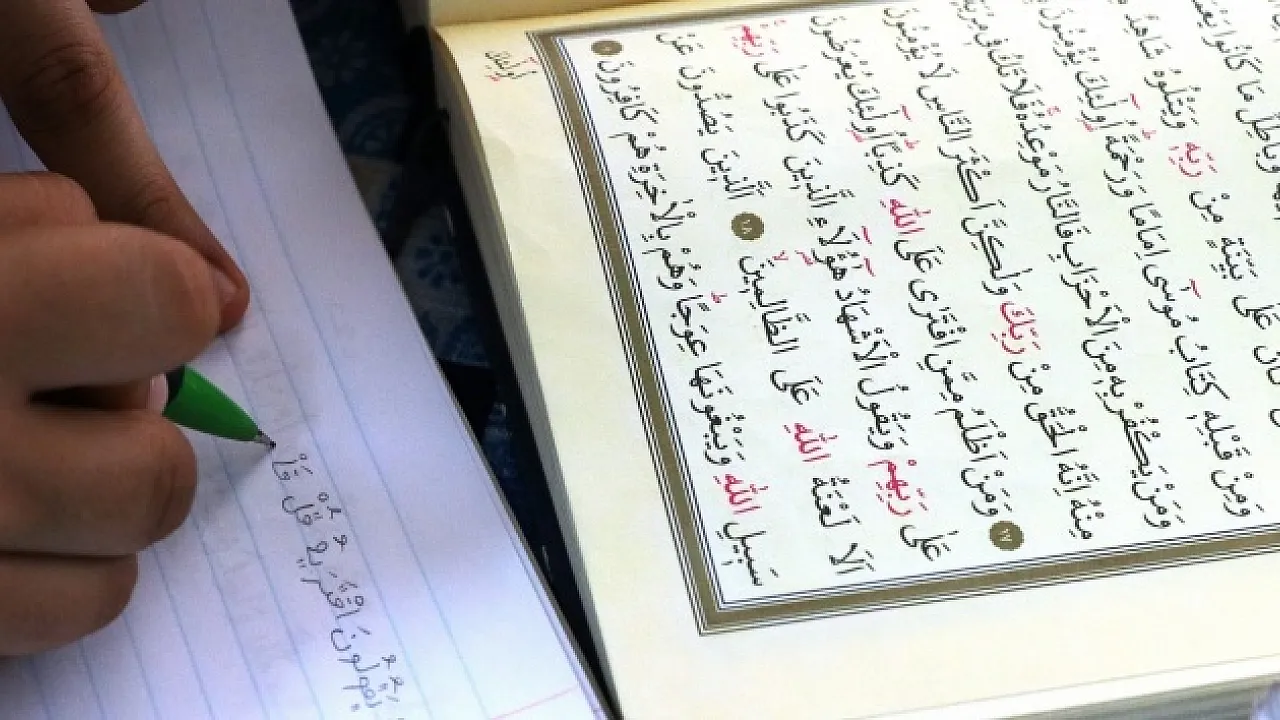 وَبَاطِلٌ مَا كَانُوا
كَانَ عَلٰى بَيِّنَةٍ مِنْ رَبِّه۪ وَيَتْلُوهُ شَاهِدٌ
وَمِنْ قَبْلِه۪ كِتَابُ مُوسٰٓى اِمَامًا وَرَحْمَةً اُو۬لٰٓئِكَ يُؤْمِنُونَ
وَمَنْ يَكْفُرْ بِه۪ مِنَ الْاَحْزَابِ فَالنَّارُ مَوْعِدُهُ فَلَا تَكُ ف۪ي مِرْيَةٍ
مِنْهُ اِنَّهُ الْحَقُّ مِنْ رَبِّكَ وَلٰكِنَّ اَكْثَرَ النَّاسِ لَا يُؤْمِنُونَ
١٧ وَمَنْ اَظْلَمُ مِمَّنِ افْتَرٰى عَلَى اللّٰهِ كَذِبًا اُو۬لٰٓئِكَ يُعْرَضُونَ
عَلٰى رَبِّهِمْ وَيَقُولُ الْاَشْهَادُ هٰٓؤُ۬لَٓاءِ الَّذ۪ينَ كَذَبُوا عَلٰى رَبِّهِمْ
اَلَا لَعْنَةُ اللّٰهِ عَلَى الظَّالِم۪ينَ ١٨ اَلَّذ۪ينَ يَصُدُّونَ عَنْ
سَب۪يلِ اللّٰهِ وَيَبْغُونَهَا عِوَجًا وَهُمْ بِالْاٰخِرَةِ هُمْ كَافِرُونَ ١٩
اُو۬لٰٓئِكَ
يَقُولُونَ افْتَرَيهُ قُلْ فَأْ